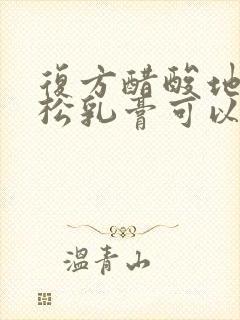 復方醋酸地
松乳膏可以
溫青山